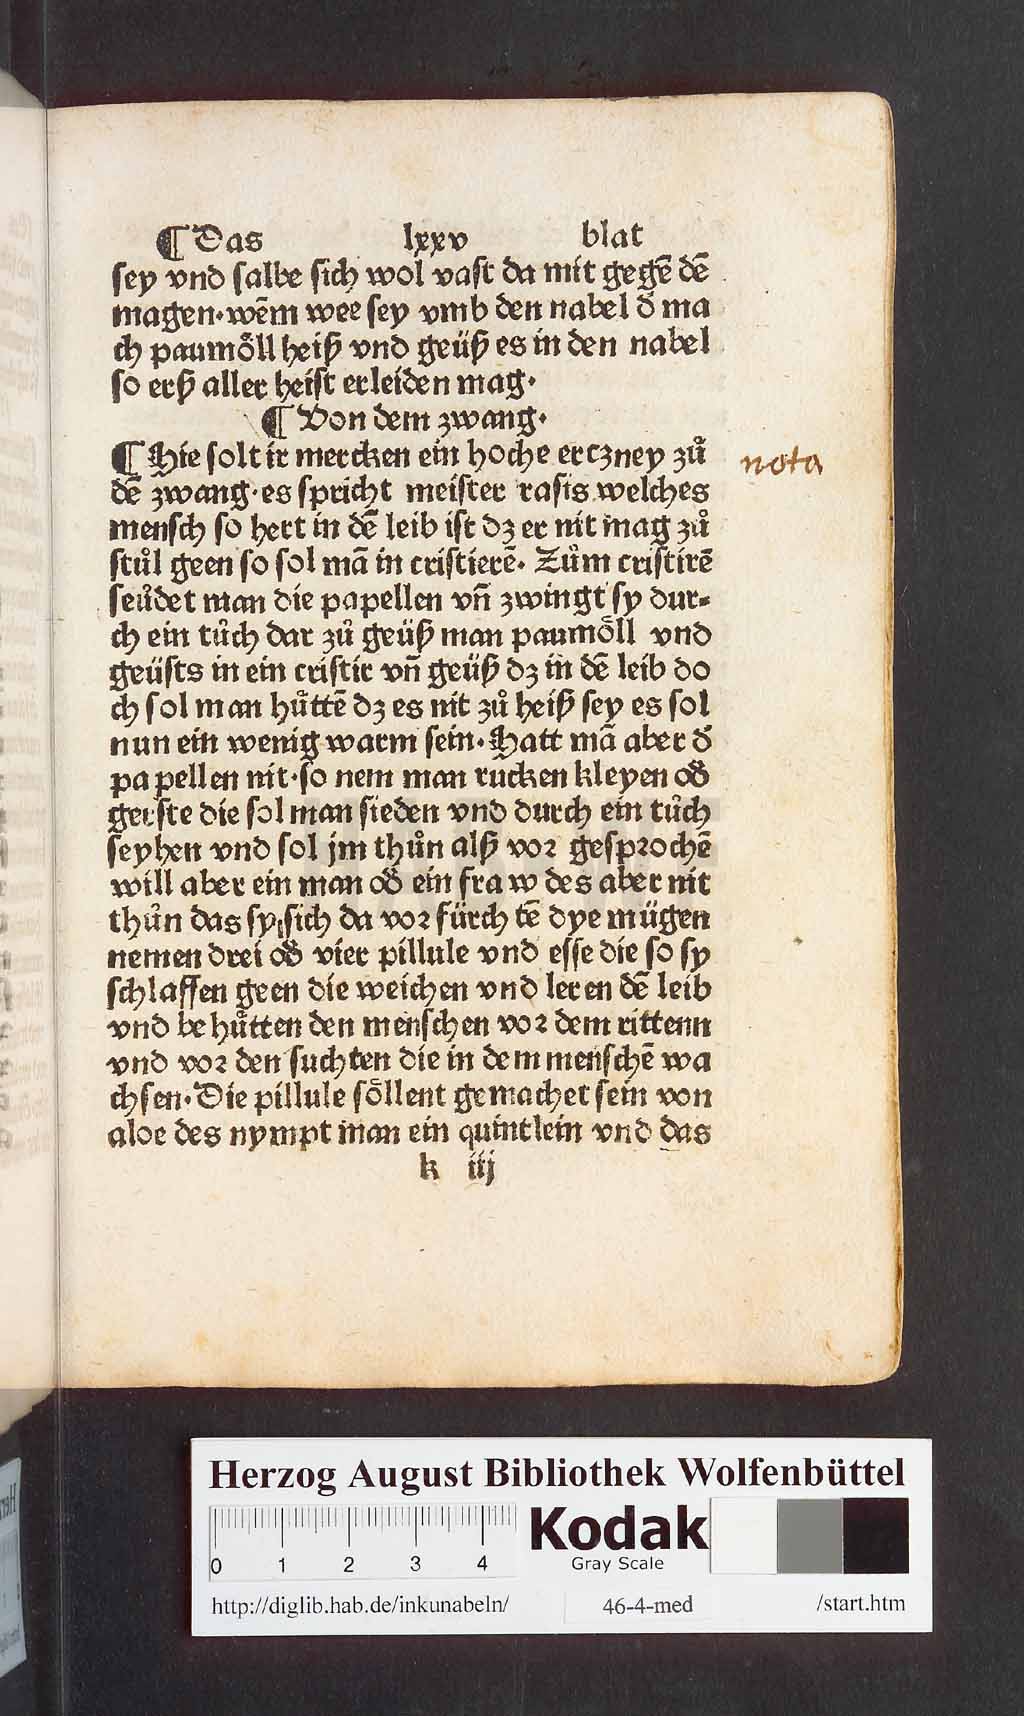 ¶ Das lxxv blat
sey vnd salbe sich wol vast da mit gegē dē
magen·wēm wee sey vmb den nabel đ ma
ch paumo᷐ͤll heiß vnd geüß es in den nabel
so erß aller heist erleiden mag·
¶ Von dem zwang·
¶ Hie solt ir mercken ein hoche erczney zuͦ
dē zwang·es spricht meister rasis welches
mensch so hert in dē leib ist dz er nit mag zuͦ
stuͦl geen so sol mā in cristierē· Zuͦm cristirē
seuͦdet man die papellen vn̄ zwingt sy dur⸗
ch ein tuͦch dar zuͦ geüß man paumoͤll vnd
geüsts in ein cristir vn̄ geüß dz in dē leib do
ch sol man huͤttē dz es nit zuͦ heiß sey es sol
nun ein wenig warm sein·Hatt mā aber đ
papellen nit·so nem man rucken kleyen ođ
gerste die sol man sieden vnd durch ein tuͦch
seyhen vnd sol jm thuͦn alß vor gesprochē
will aber ein man ođ ein fraw des aber nit
thuͦn das sy sich da vor fürchtē dye mügen
nemen drei ođ vier pillule vnd esse die so sy
schlaffen geen die weichen vnd leren dē leib
vnd be huͤtten den menschen vor dem rittenn
vnd vor den suchten die in dem menschē wa
chsen·Die pillule soͤllent gemachet sein von
aloe des nympt man ein quintlein vnd das
k iij
nota
Herzog August Bibliothek Wolfenbüttel
0 1 2 3 4
Kodak
Gray Scale
http://diglib.hab.de/inkunabeln/ 46-4-med /start.htm